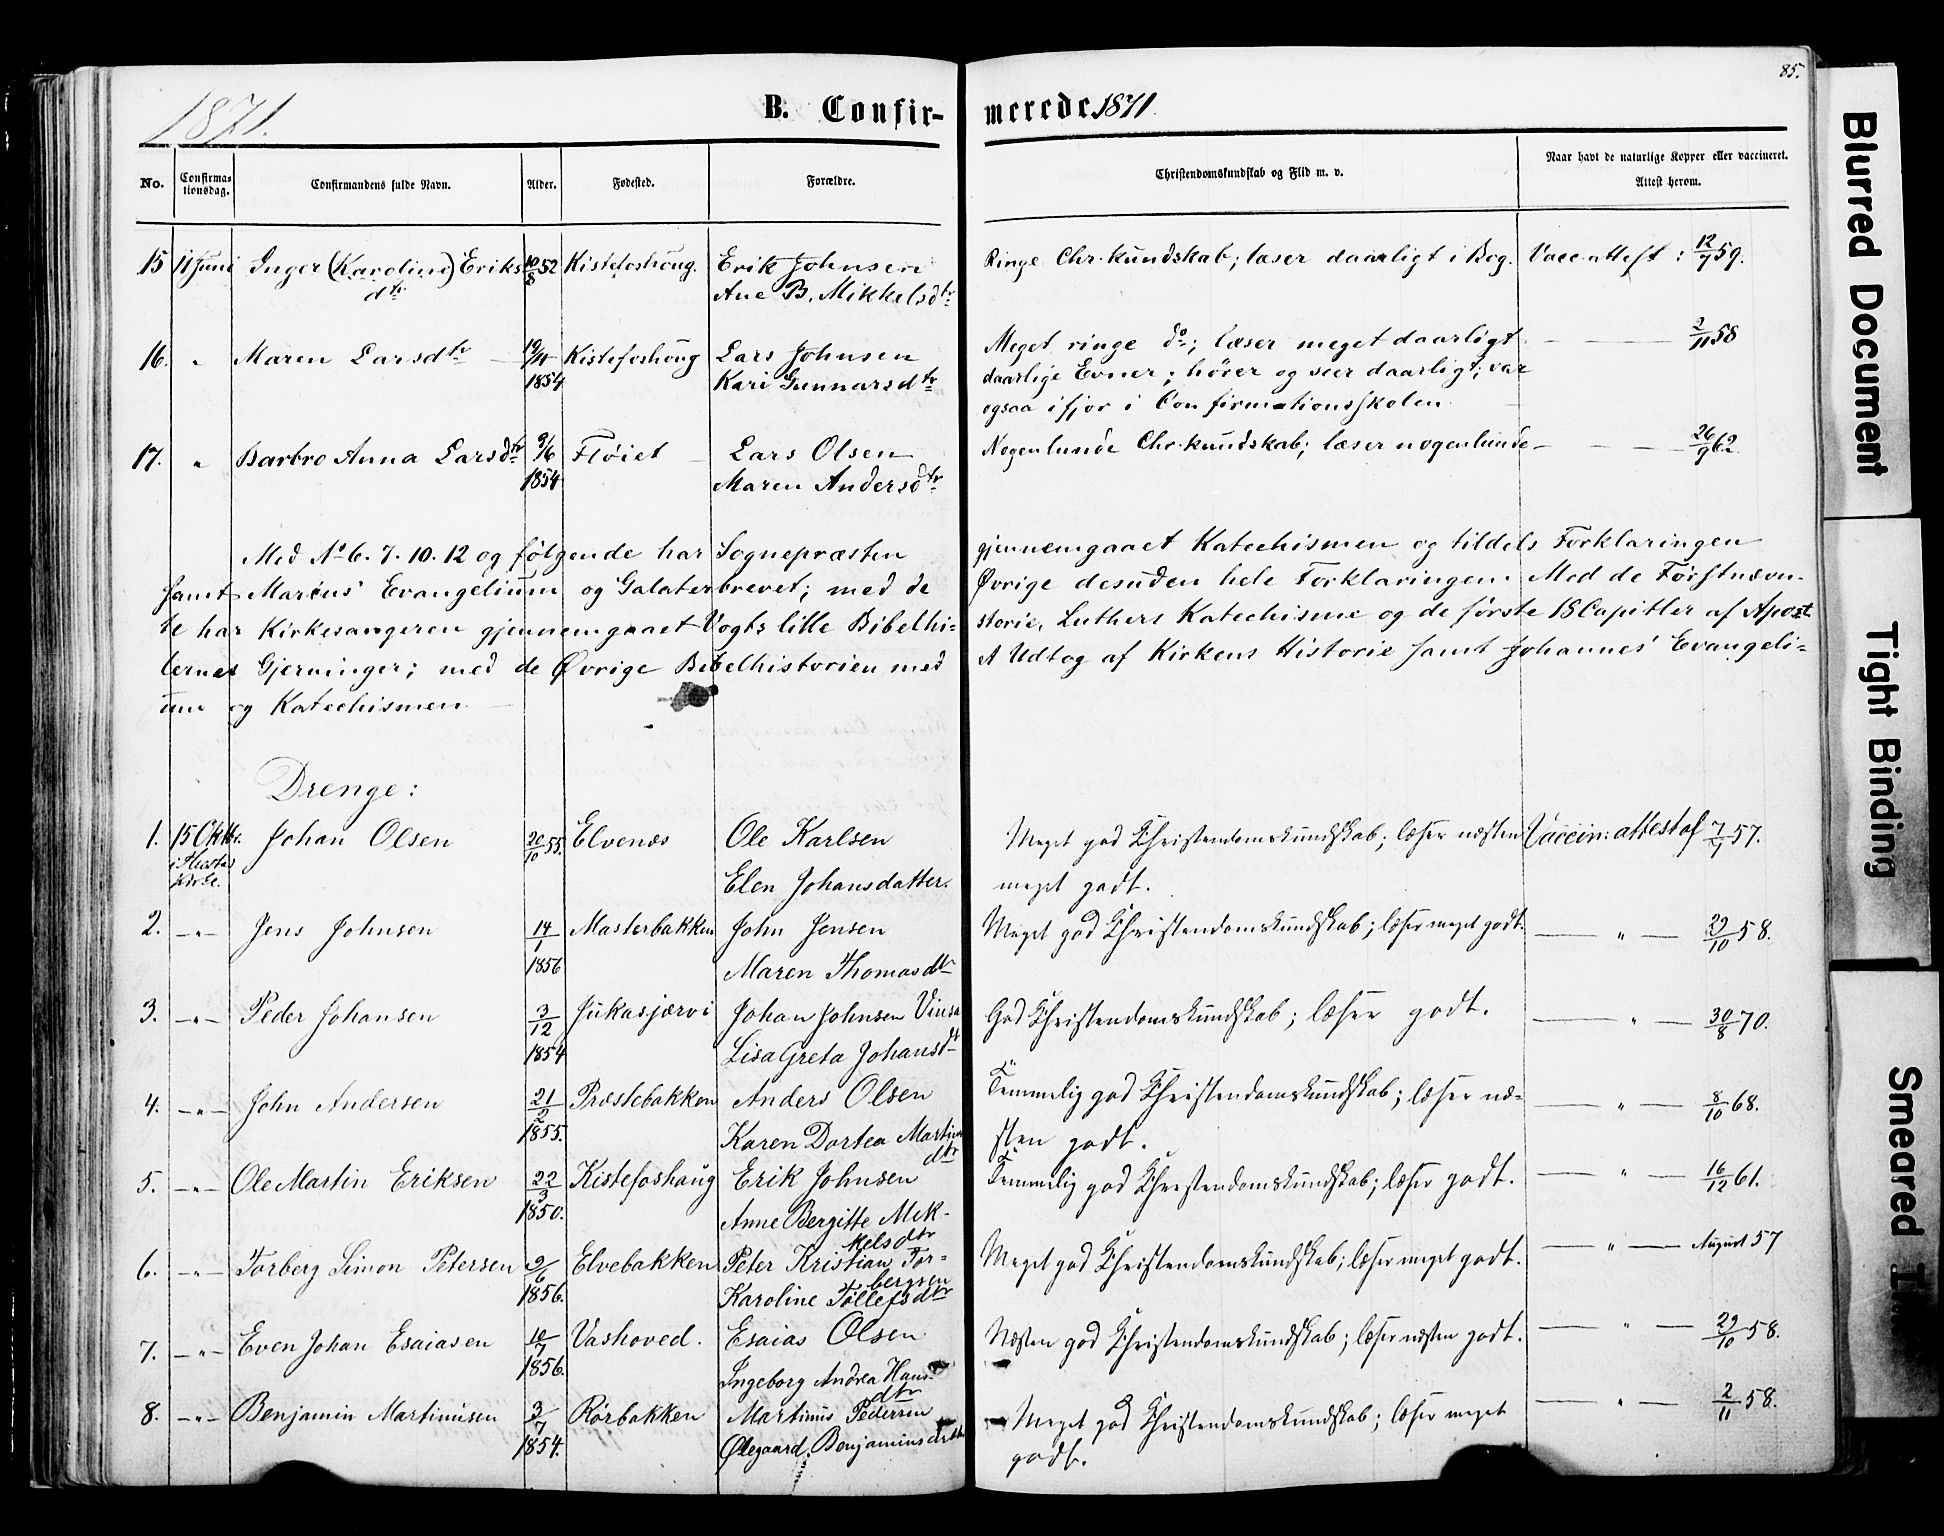 85.
1871.
B. Confirmerede 1871.
No. Confirmationsdag. Confirmandens fulde Navn. Alder. Fødested. Forældre. Christendomskundskab og Flid m. v. Naar havt de naturlige Kopper eller vaccineret. Attest herom.
15 11 Juni Inger (Karoline) Eriks 10/8 52 Kistefoshoug. Erik Johnsen Ringe Chr.kundskab; læser daarligt i Bog. Vacc.attest : 12/7 59.
dtr Ane B. Mikkelsdtr
16. " Maren Larsdtr 19/11 Kistefoshoug Lars Johnsen Meget ringe do; læser meget daarligt — 2/11 58
1854 Kari Gunnarsdtr daarlige Evner; hører og seer daarligt; var
ogsaa ifjor i Confirmationsskolen
17. " Barbro Anna Larsdtr 9/6 Fløiet Lars Olsen Nogenlunde Chr.kundskab; læser nogenlunde — 26/9 62.
1854 Maren Andersdtr
Med No 6. 7. 10. 12 og følgende har Sognepræsten gjennemgaaet Katechismen og tildels Forklaringen
samt Marcus' Evangelium og Galaterbrevet; med de Øvrige desuden hele Forklaringen. Med de Førstnævn-
te har Kirkesangeren gjennemgaaet Vogts lille Bibelhi- storie, Luthers Katechisme og de første 18 Capitler af Apost
lernes Gjerninger; med de Øvrige Bibelhistorien med et Udtog af Kirkens Historie samt Johannes' Evangeli-
um og Katechismen
Drenge:
1. 15 Oktbr. Johan Olsen 20/10 55. Elvenæs Ole Karlsen Meget god Christendomskundskab; læser næsten Vaccin: attest af 7/7 57.
Elen Johansdatter. meget godt.
2. — " — Jens Johnsen 14/1 Masterbakken John Jensen Meget god Christendomskundskab; læser meget godt. — " — 29/10 58.
1856 Maren Thomasdtr
3. — " — Peder Johansen 3/12 Jukasjærvi Johan Johnsen God Christendomskundskab; læser godt. — " — 30/8 70.
1854 Lisa Greta Johansdtr
4. — " — John Andersen 21/2 Præstebakken Anders Olsen Temmelig god Christendomskundskab; læser næ- — " — 8/10 68.
1855. Karen Dortea Martins sten godt.
dtr
5. — " — Ole Martin Eriksen 22/3 Kistefoshaug Erik Johnsen Temmelig god Christendomskundskab; læser godt. — " — 16/12 61.
1850. Anne Bergitte Mik-
kelsdtr
6. — " — Torberg Simon Petersen 9/6 Elvebakken Peter Kristian Tor- Meget god Christendomskundskab; læser meget godt. — " — August 57
bergsen
1856. Karoline Tollefsdtr
7. — " — Even Johan Esaiasen 10/7 Vashoved. Esaias Olsen Næsten god Christendomskundskab; læser næsten godt. — " — 29/10 58.
1856. Ingeborg Andrea Hans-
dtr
8. — " — Benjamin Martinusen 3/7 Rørbakken Martinus Pedersen Meget god Christendomskundskab; læser meget — " — 2/11 58.
1854. Ølegaard Benjaminsdtr godt.
Blurred Document
Tight Binding
Smeared